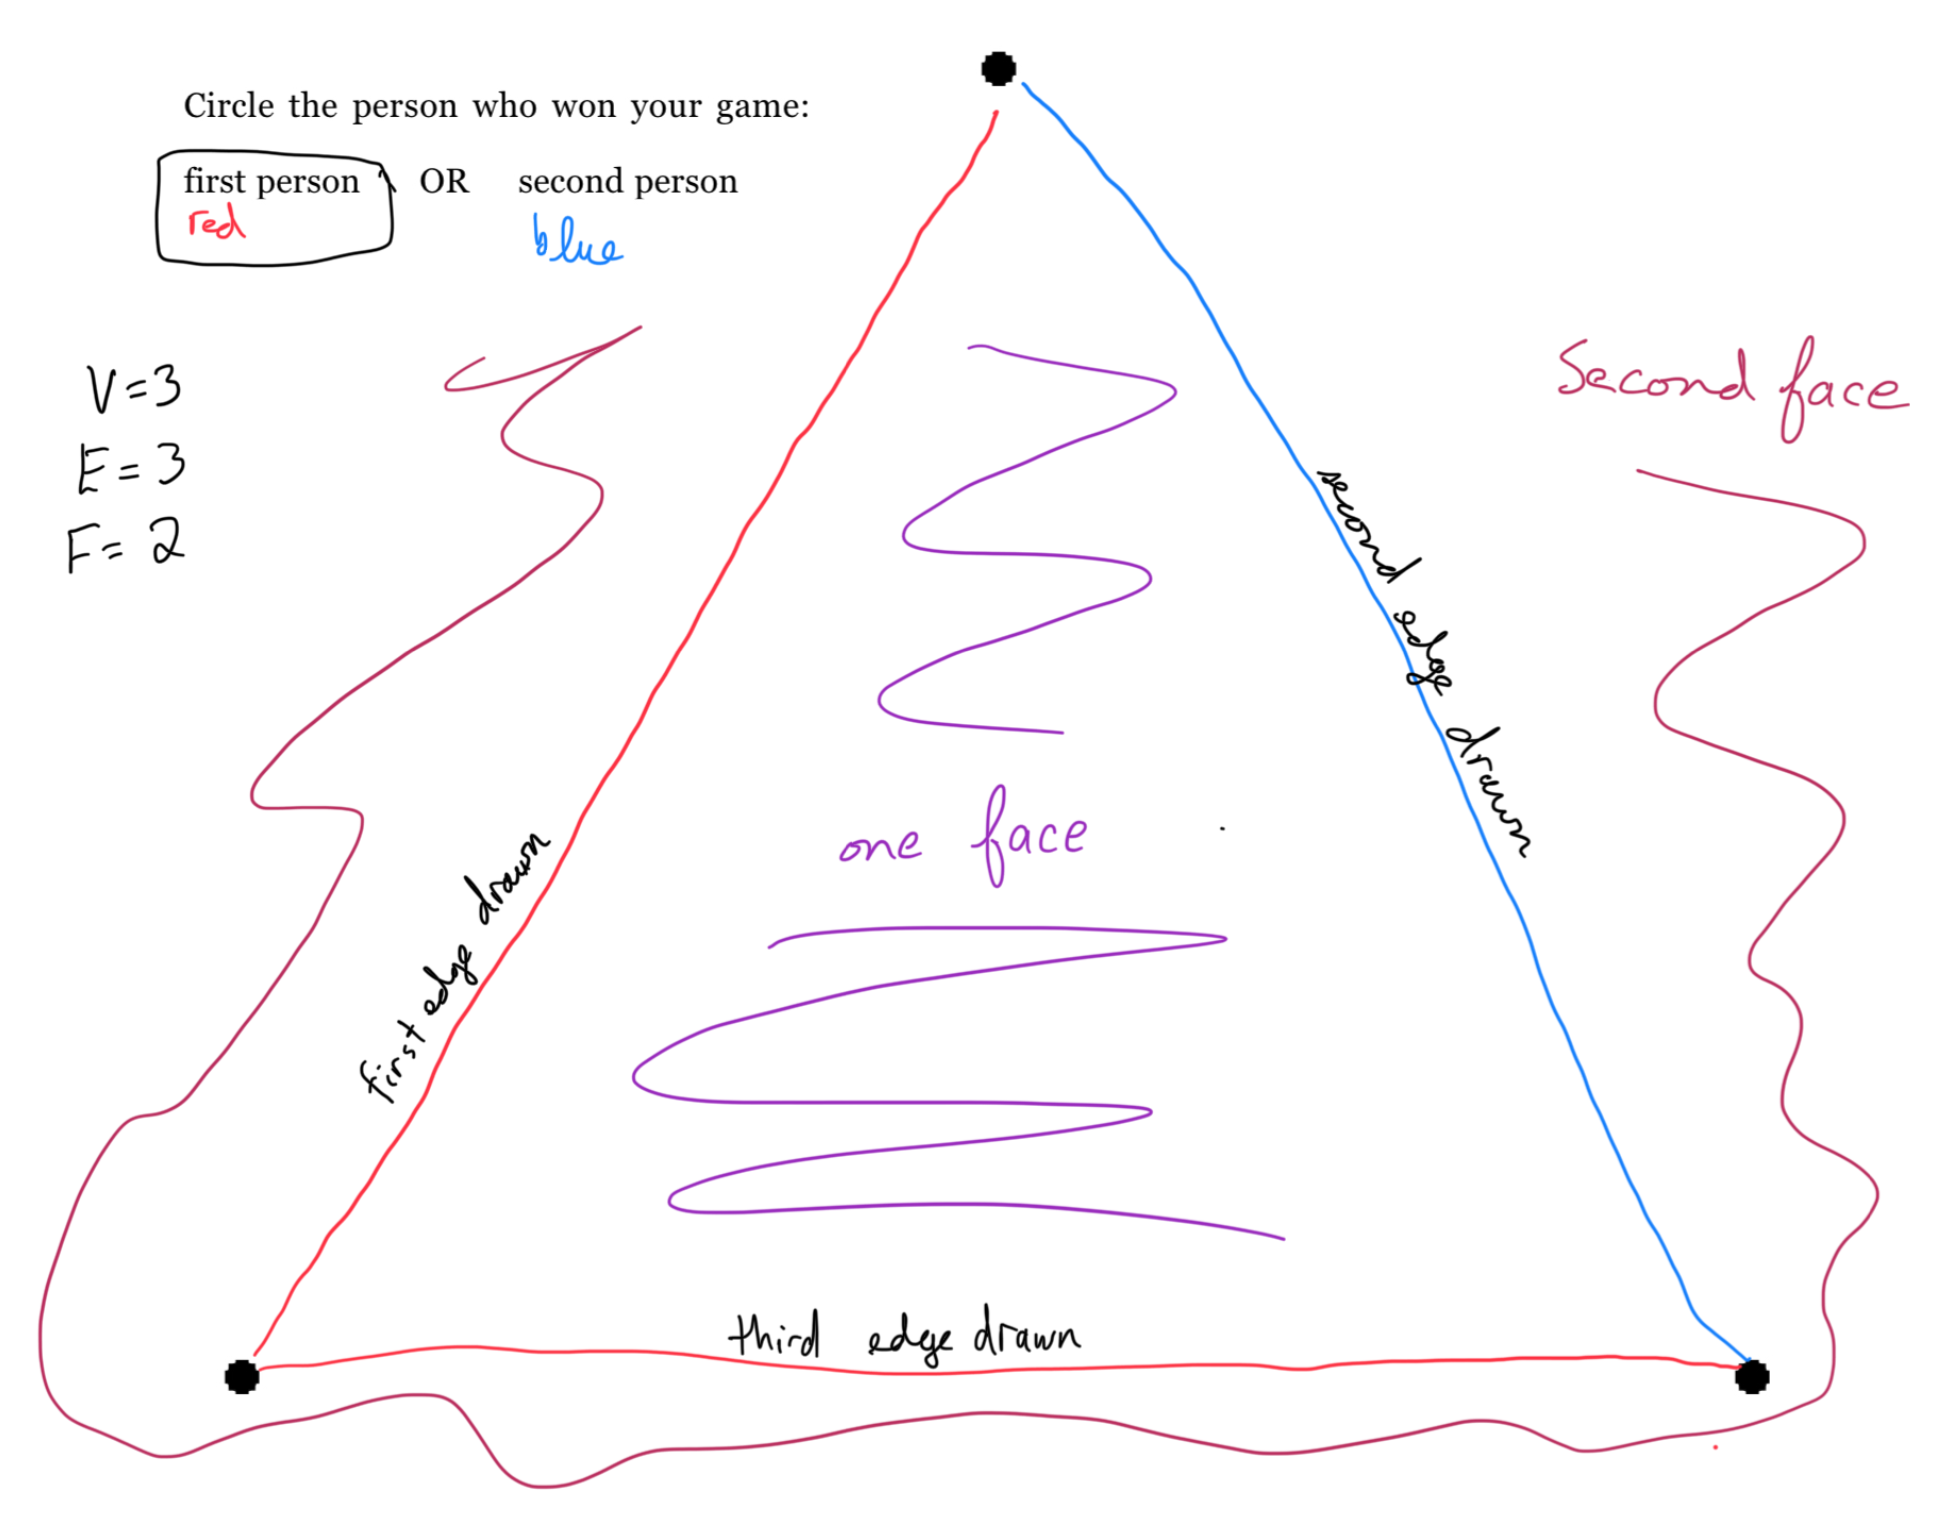 Circle the person who won your game:
first person OR second person
red blue
V=3
E=3
F=2
Second face
second edge drawn
one face
first edge drawn
third edge drawn